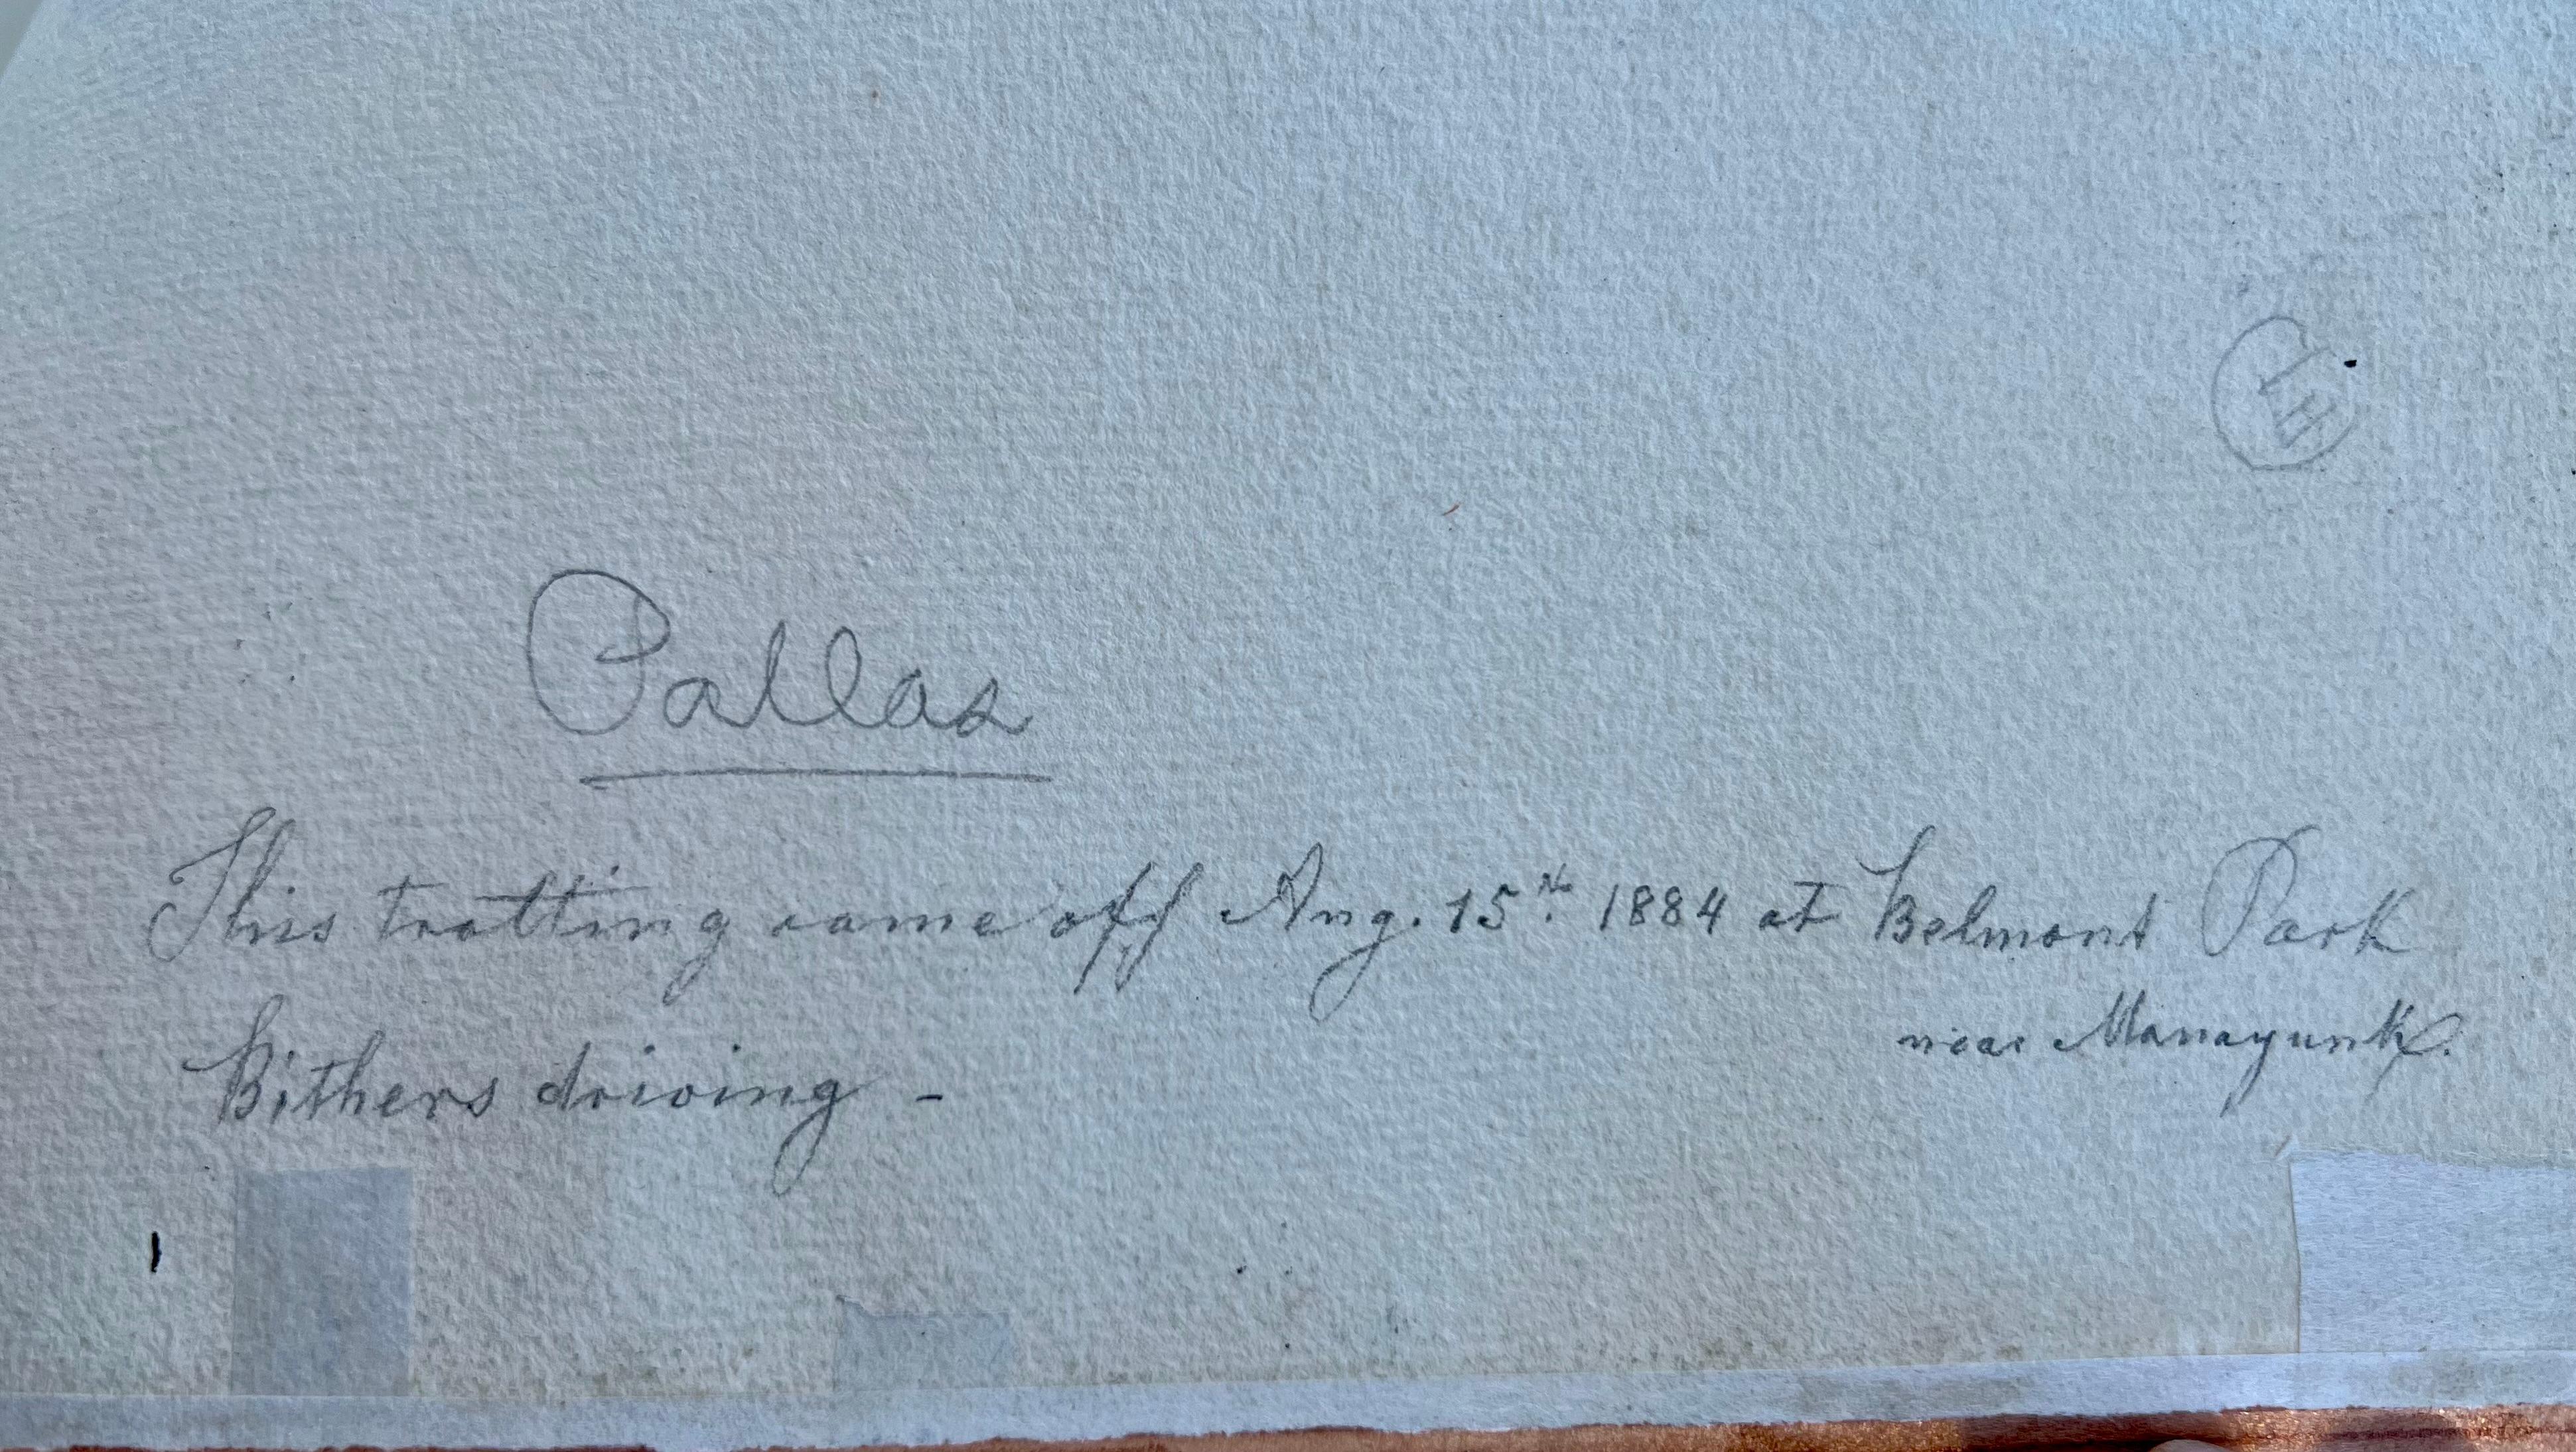 Pallas
This trotting came off Aug. 15th 1884 at Belmont Park
near Manayunk.
Bithers driving -